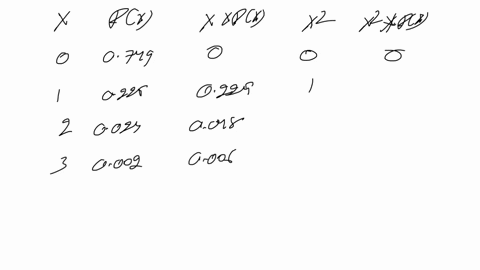 X P(x) X × P(x) X² X² × P(x)
0 0.749 0 0 0
1 0.225 0.225 1
2 0.024 0.048
3 0.002 0.006